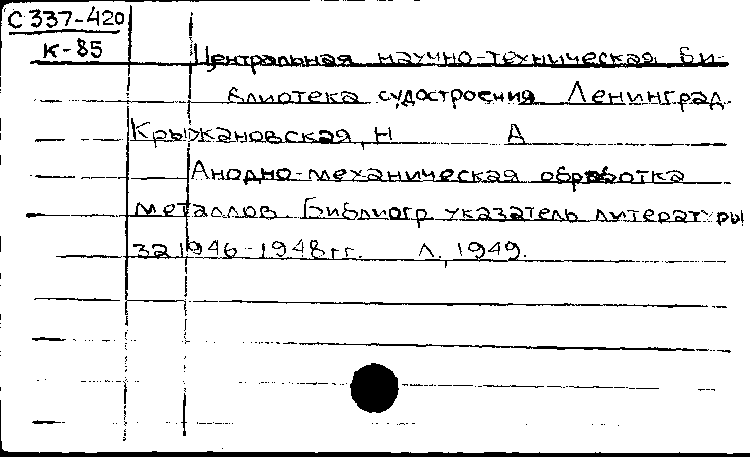 С 337-420
К-85
Центральная научно-техническая би-
блиотека судостроения Ленинград.
Крыжановская, Н А
Анодно-механическая обработка
металлов. Библиогр указатель литературы
за 1946-1948 гг. Л., 1949.